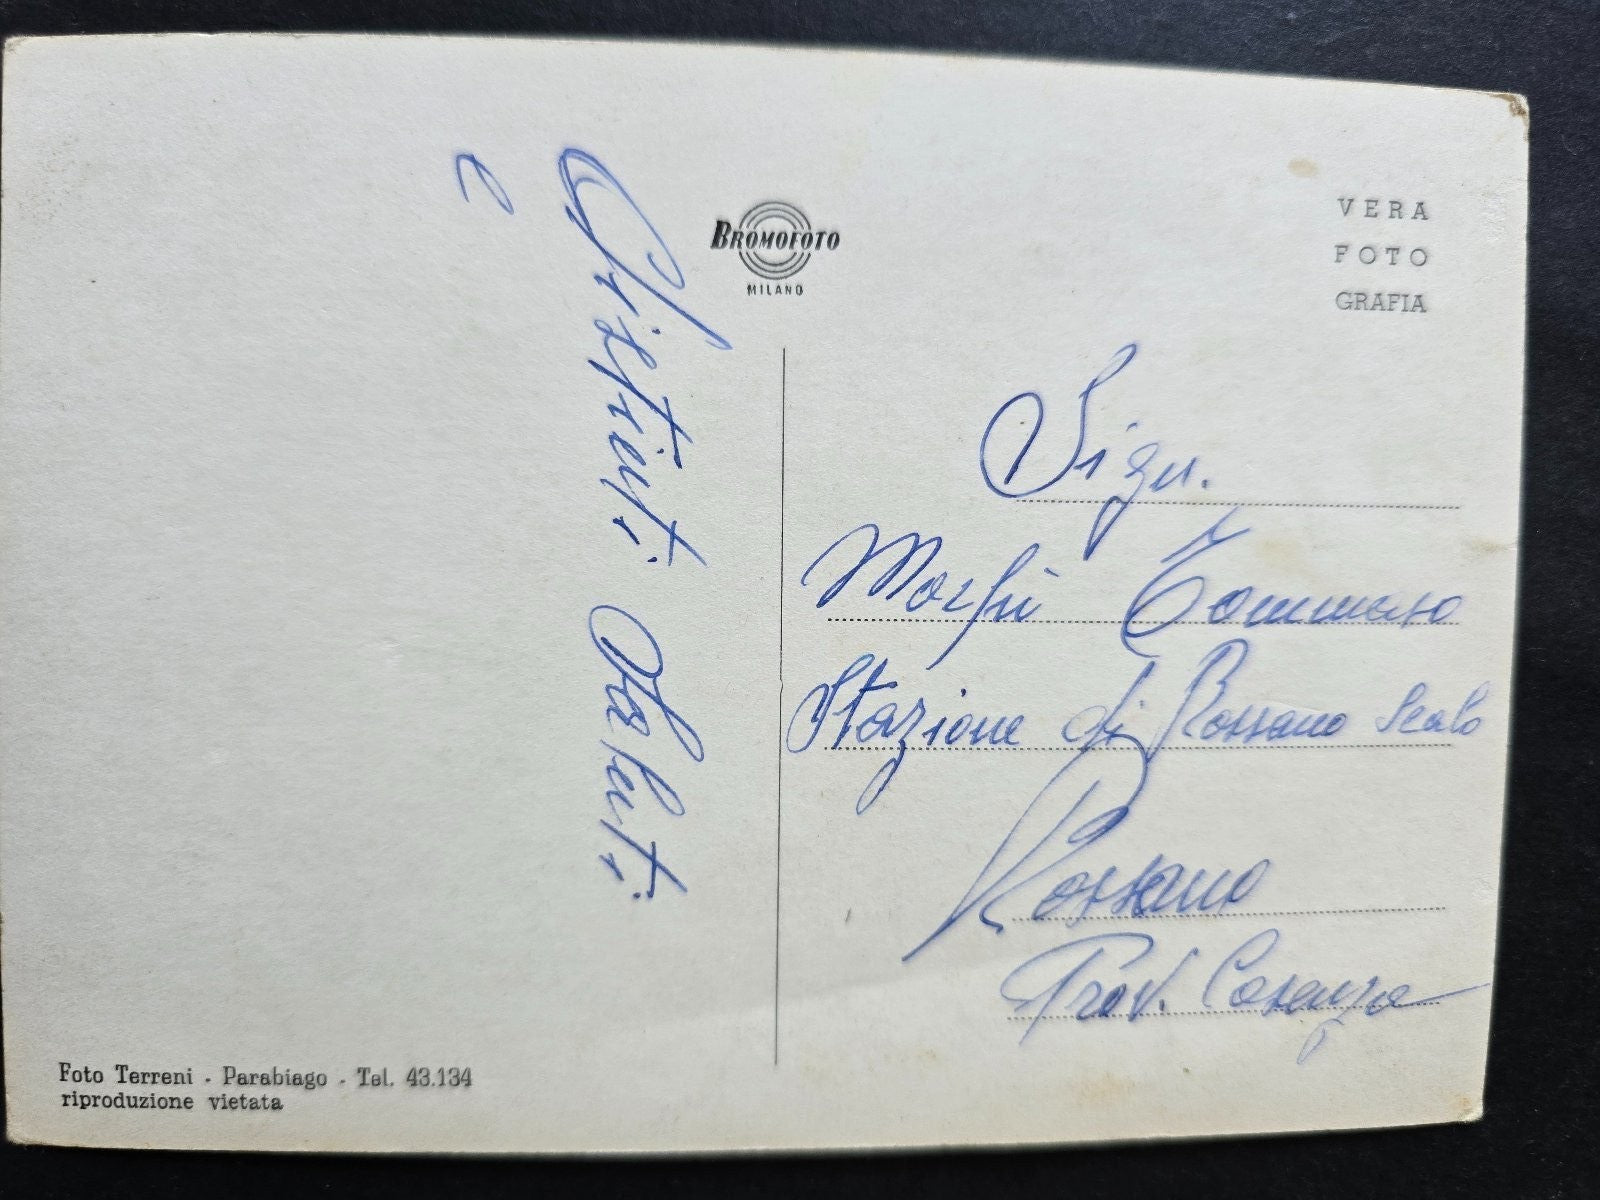 Distinti Saluti
e
BROMOFOTO
MILANO
VERA
FOTO
GRAFIA
Sign.
Morfù Tommaso
Stazione di Rossano Scalo
Rossano
Prov. Cosenza
Foto Terreni - Parabiago - Tel. 43.134
riproduzione vietata